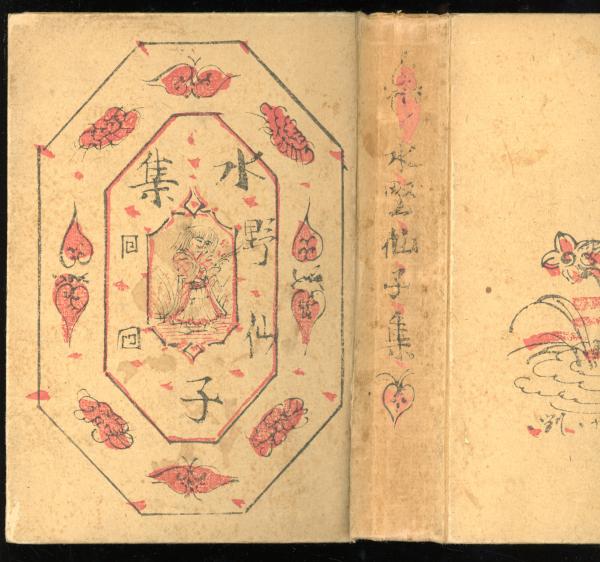 水野仙子集
水野仙子集